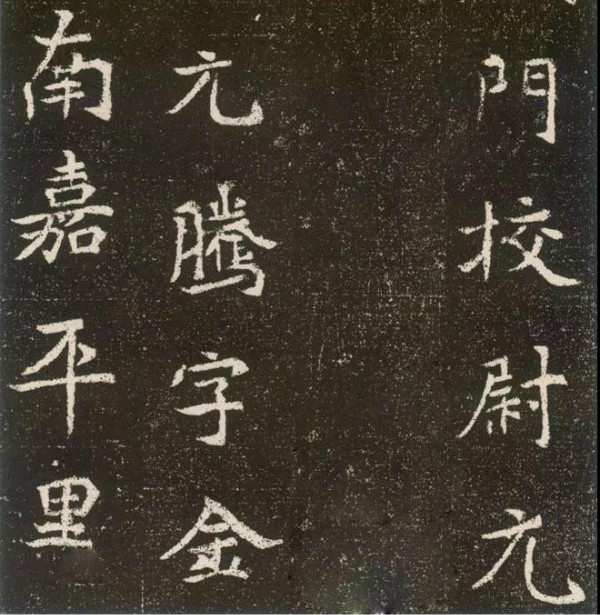 門挍尉元
元騰字金
南嘉平里